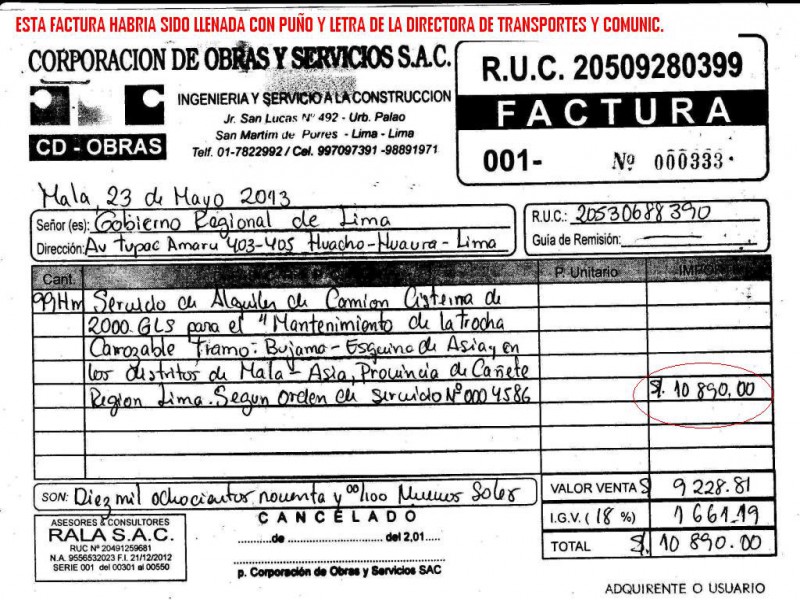 ESTA FACTURA HABRIA SIDO LLENADA CON PUÑO Y LETRA DE LA DIRECTORA DE TRANSPORTES Y COMUNIC.
CORPORACION DE OBRAS Y SERVICIOS S.A.C.
CD - OBRAS
INGENIERIA Y SERVICIO A LA CONSTRUCCION
Jr. San Lucas N° 492 - Urb. Palao
San Martim de Porres - Lima - Lima
Telf. 01-7822992 / Cel. 997097391 -98891971
R.U.C. 20509280399
FACTURA
001- Nº 000333
Mala, 23 de Mayo 2013
Señor (es): Gobierno Regional de Lima
Dirección: Av Tupac Amaru 403-405 Huacho-Huaura-Lima
R.U.C.: 20530688390
Guía de Remisión:
Cant. P. Unitario IMPORTE
99Hm Servicio de Alquiler de Camion Cisterna de
2000 GLS para el " Mantenimiento de la trocha
Carrozable Tramo: Bujama-Esquina de Asia y en
los distritos de Mala-Asia, Provincia de Cañete
Region Lima. Segun Orden de Servicio Nº 0004586 S/. 10 890.00
SON: Diez mil ochocientos noventa y 00/100 Nuevos Soles
CANCELADO
de del 2,01
p. Corporación de Obras y Servicios SAC
VALOR VENTA S/ 9 228.81
I.G.V. (18 %) 1 661.19
TOTAL S/. 10 890.00
ASESORES & CONSULTORES
RALA S.A.C.
RUC Nº 20491259681
N.A. 9556532023 F.I. 21/12/2012
SERIE 001 del 00301 al 00550
ADQUIRENTE O USUARIO